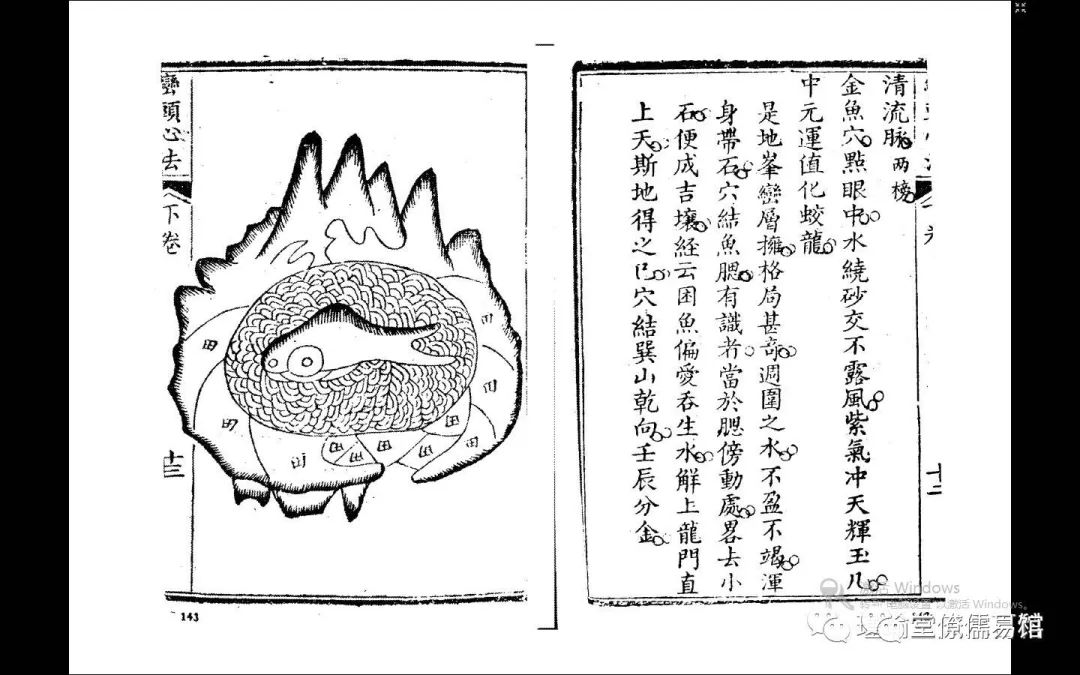 清流脉兩榜
金魚穴點眼中水繞砂交不露風紫氣冲天輝玉几
中元運值化蛟龍
是地峯巒層擁格局甚奇週圍之水不盈不竭渾
身帶石穴結魚腮有識者當於腮傍動處畧去小
石便成吉壤経云困魚偏愛吞生水解上龍門直
上天斯地得之巳穴結巽山乾向壬辰分金
十二
巒頭心法
下卷
十三
田
田
田
田
田
田
田
田
143
激活 Windows
转到"电脑设置"以激活 Windows。
堂僚儒易館